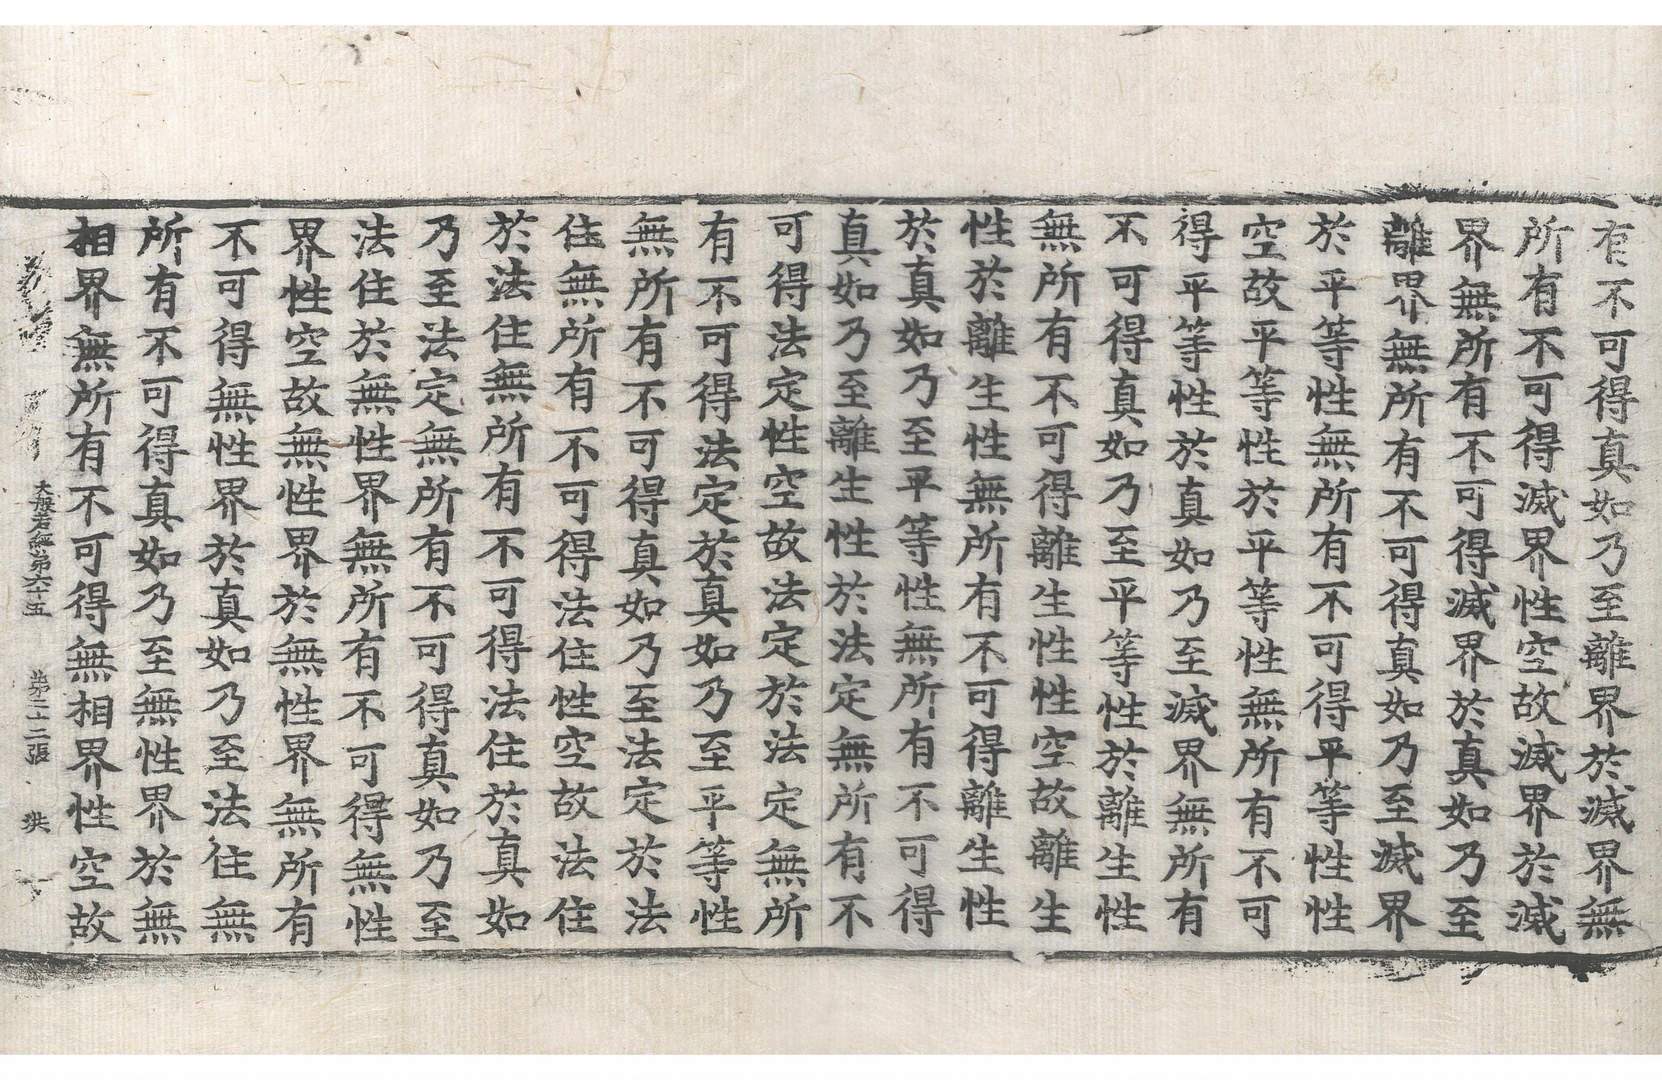 有不可得真如乃至離界於滅界無
所有不可得滅界性空故滅界於滅
界無所有不可得滅界於真如乃至
離界無所有不可得真如乃至滅界
於平等性無所有不可得平等性性
空故平等性於平等性無所有不可
得平等性於真如乃至滅界無所有
不可得真如乃至平等性於離生性
無所有不可得離生性性空故離生
性於離生性無所有不可得離生性
於真如乃至平等性無所有不可得
真如乃至離生性於法定無所有不
可得法定性空故法定於法定無所
有不可得法定於真如乃至平等性
無所有不可得真如乃至法定於法
住無所有不可得法住性空故法住
於法住無所有不可得法住於真如
乃至法定無所有不可得真如乃至
法住於無性界無所有不可得無性
界性空故無性界於無性界無所有
不可得無性界於真如乃至法住無
所有不可得真如乃至無性界於無
相界無所有不可得無相界性空故
大般若經第六十五 第二十二張 洪